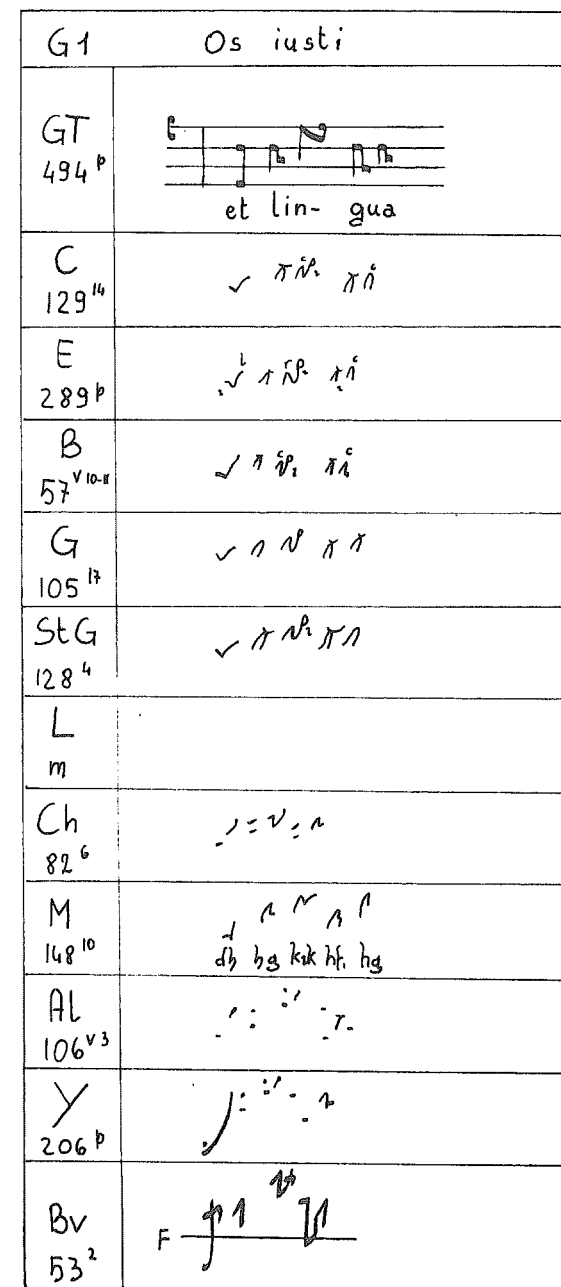 G1 Os iusti
GT
494 p
et lin- gua
C
129 14
E
289 p
B
57 v 10-11
G
105 17
StG
128 4
L
m
Ch
82 6
M
148 10
hg hg
Al
106 v 3
Y
206 p
Bv F
53 2